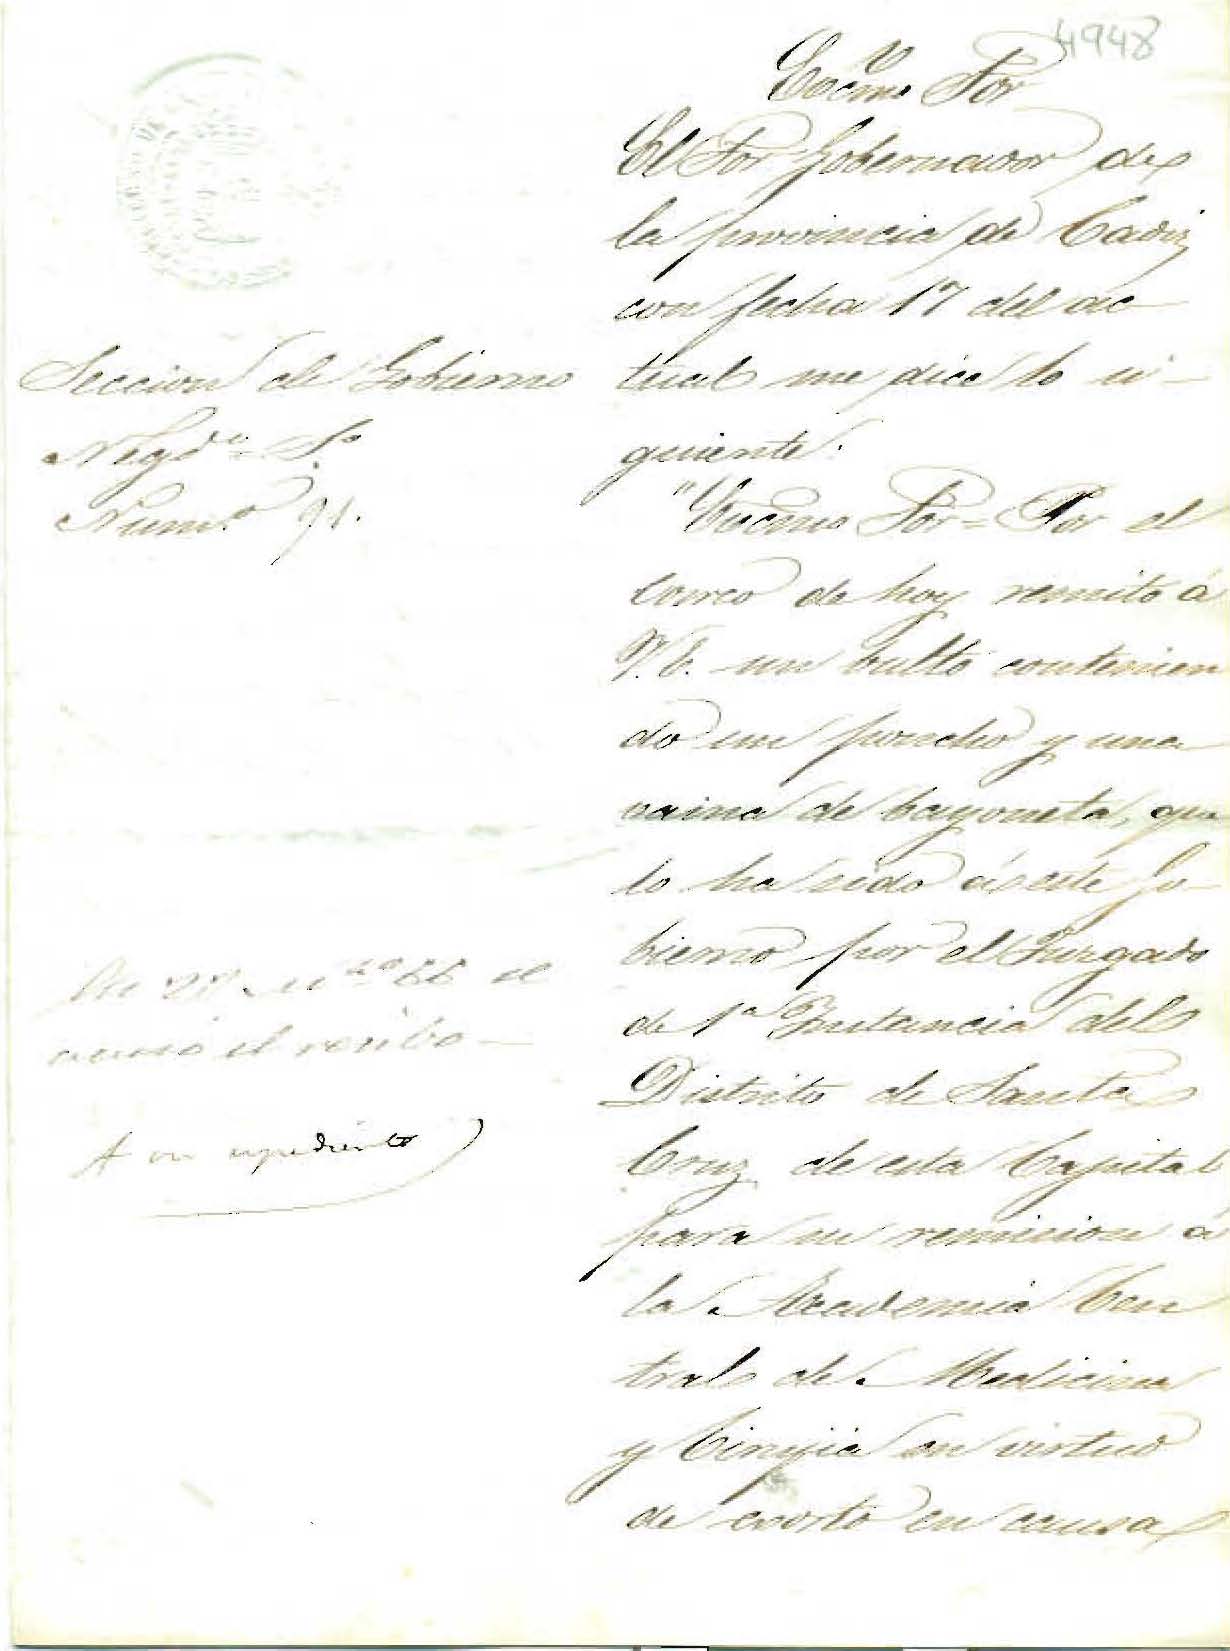 4948
Excmo Sor
El Sor Gobernador de
la provincia de Cadiz
con fecha 17 del ac
tual me dice lo si-
guiente.
"Excmo Sor = Por el
correo de hoy remito á
V.E. un bulto contenien
do un poncho y una
vaina de bayoneta, que
lo ha sido á este Go-
bierno por el Juzgado
de 1ª Instancia del
Distrito de Santa
Cruz de esta Capital
para su remision á
la Academia Cen
tral de Medicina
y Cirujia en virtud
de exorto en causa
Seccion de Gobierno
Negdo
Numo 91.
el
recibo
A su expediente